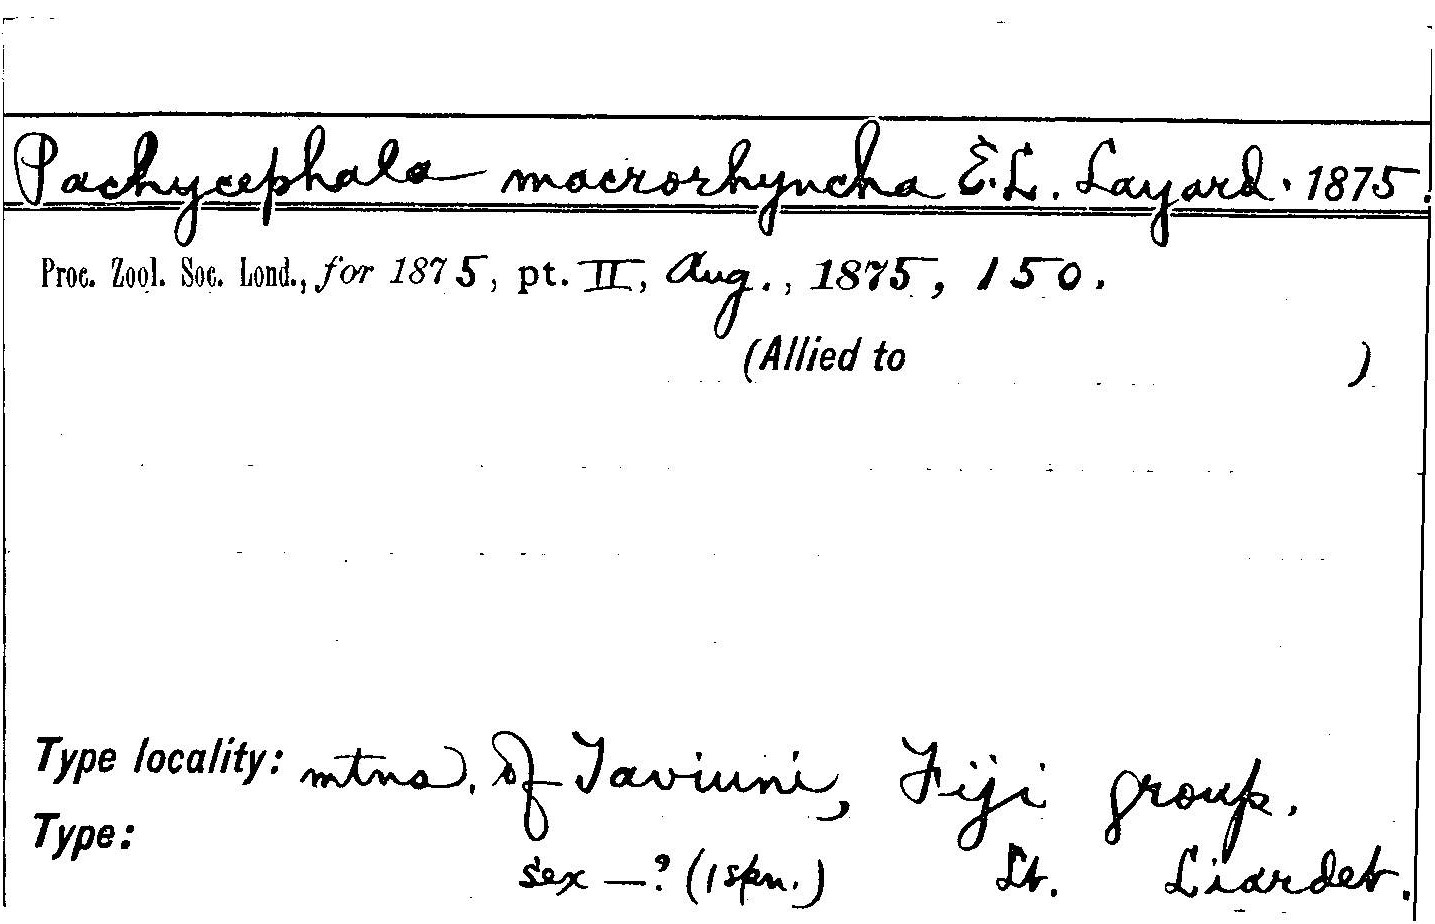 Pachycephala macrorhyncha E.L. Layard. 1875.
Proc. Zool. Soc. Lond., for 1875, pt. II, Aug., 1875, 150.
(Allied to )
Type locality: mtns. of Taviuni, Fiji group.
Type:
sex —? (1 spn.) Lt. Liardet.